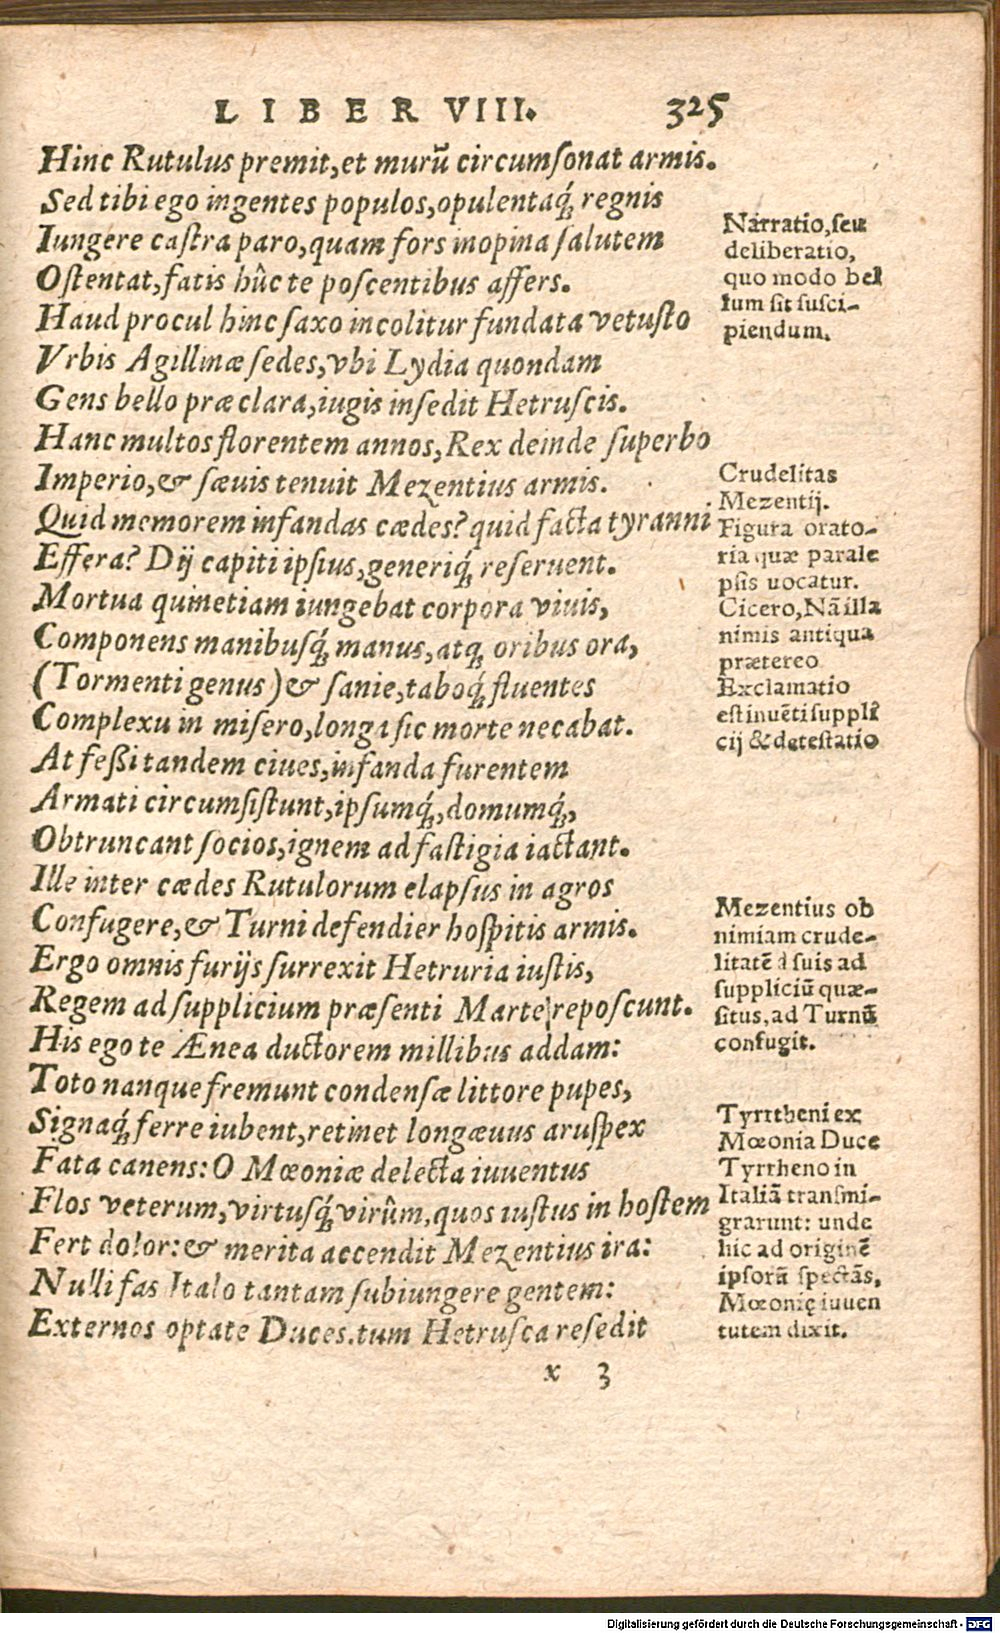 LIBER VIII. 325
Hinc Rutulus premit, et murū circumſonat armis.
Sed tibi ego ingentes populos, opulentaq́; regnis
Iungere caſtra paro, quam fors inopina ſalutem
Oſtentat, fatis hûc te poſcentibus affers.
Haud procul hinc ſaxo incolitur fundata vetuſto
Vrbis Agillinæ ſedes, vbi Lydia quondam
Gens bello præclara, iugis inſedit Hetruſcis.
Hanc multos florentem annos, Rex deinde ſuperbo
Imperio, & ſæuis tenuit Mezentius armis.
Quid memorem infandas cædes? quid facta tyranni
Effera? Dij capiti ipſius, generiq́; reſeruent.
Mortua quinetiam iungebat corpora viuis,
Componens manibuſq́; manus, atq; oribus ora,
(Tormenti genus) & ſanie, taboq́; fluentes
Complexu in miſero, longa ſic morte necabat.
At feßi tandem ciues, infanda furentem
Armati circumſiſtunt, ipſumq́;, domumq́;,
Obtruncant ſocios, ignem ad faſtigia iactant.
Ille inter cædes Rutulorum elapſus in agros
Confugere, & Turni defendier hoſpitis armis.
Ergo omnis furijs ſurrexit Hetruria iuſtis,
Regem ad ſupplicium præſenti Marte repoſcunt.
His ego te Ænea ductorem millibus addam:
Toto nanque fremunt condenſæ littore pupes,
Signaq́; ferre iubent, retinet longæuus aruſpex
Fata canens: O Mœoniæ delecta iuuentus
Flos veterum, virtuſq́; virûm, quos iuſtus in hoſtem
Fert dolor: & merita accendit Mezentius ira:
Nulli fas Italo tantam ſubiungere gentem:
Externos optate Duces. tum Hetruſca reſedit
x 3
Narratio, ſeu
deliberatio,
quo modo bel
lum ſit ſuſci-
piendum.
Crudelitas
Mezentij.
Figura orato-
ria quæ parale
pſis uocatur.
Cicero, Nā illa
nimis antiqua
prætereo
Exclamatio
eſt inuēti ſuppli
cij & deteſtatio
Mezentius ob
nimiam crude-
litatē à ſuis ad
ſuppliciū quæ-
ſitus, ad Turnū
confugit.
Tyrrtheni ex
Mœonia Duce
Tyrrheno in
Italiā tranſmi-
grarunt: unde
hic ad originē
ipſorū ſpectās,
Mœonię iuuen
tutem dixit.
Digitalisierung gefördert durch die Deutsche Forschungsgemeinschaft - DFG